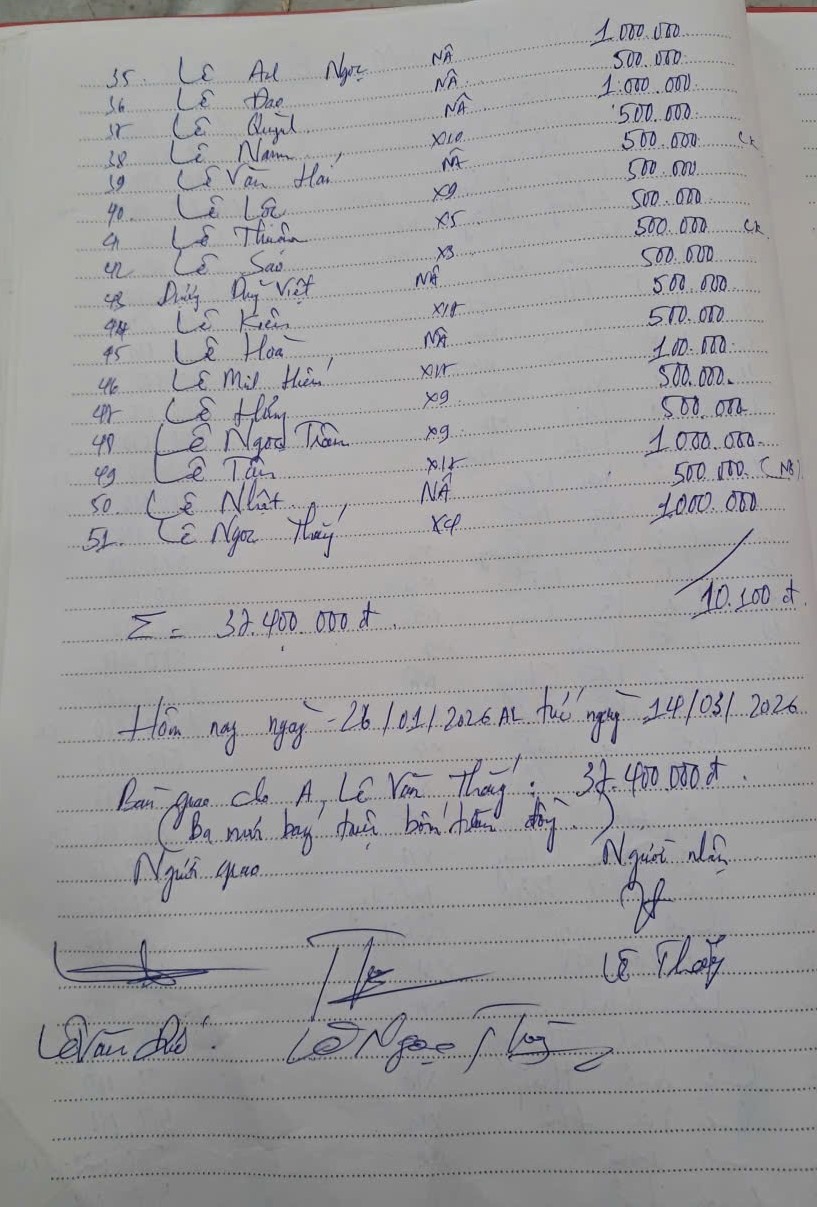 35. Lê Ngọc NÂ 1.000.000
36 Lê Đạo NÂ 500.000
37 Lê Quỳnh NÂ 1.000.000
38 Lê Nam X10 500.000
39 Lê Văn Hai NÂ 500.000 CK
40. Lê Lộc X9 500.000
41 Lê Thuần X5 500.000
42 Lê Sáo X3 500.000 CK
43 Duy Việt NÂ 500.000
44 Lê Kiên 500.000
45 Lê Hoà NÂ 500.000
46 Lê Hiến 100.000
47 Lê Hùng X9 500.000.
48 Lê Ngọc Trâm X9 500.000
49 Lê Tân 1000.000
50. Lê Nhật NÂ 500.000 (NB)
51. Lê Ngọc Thủy X4 1000.000
10.100 đ
Σ = 37.400.000 đ.
Hôm nay ngày 26/01/2026 AL tức ngày 14/03/2026
Bàn giao cho A. Lê Văn Thắng: 37.400.000 đ.
(Ba mươi bảy triệu bốn trăm đồng)
Người giao Người nhận
Lê Thắng
Lê Văn Lê Ngọc